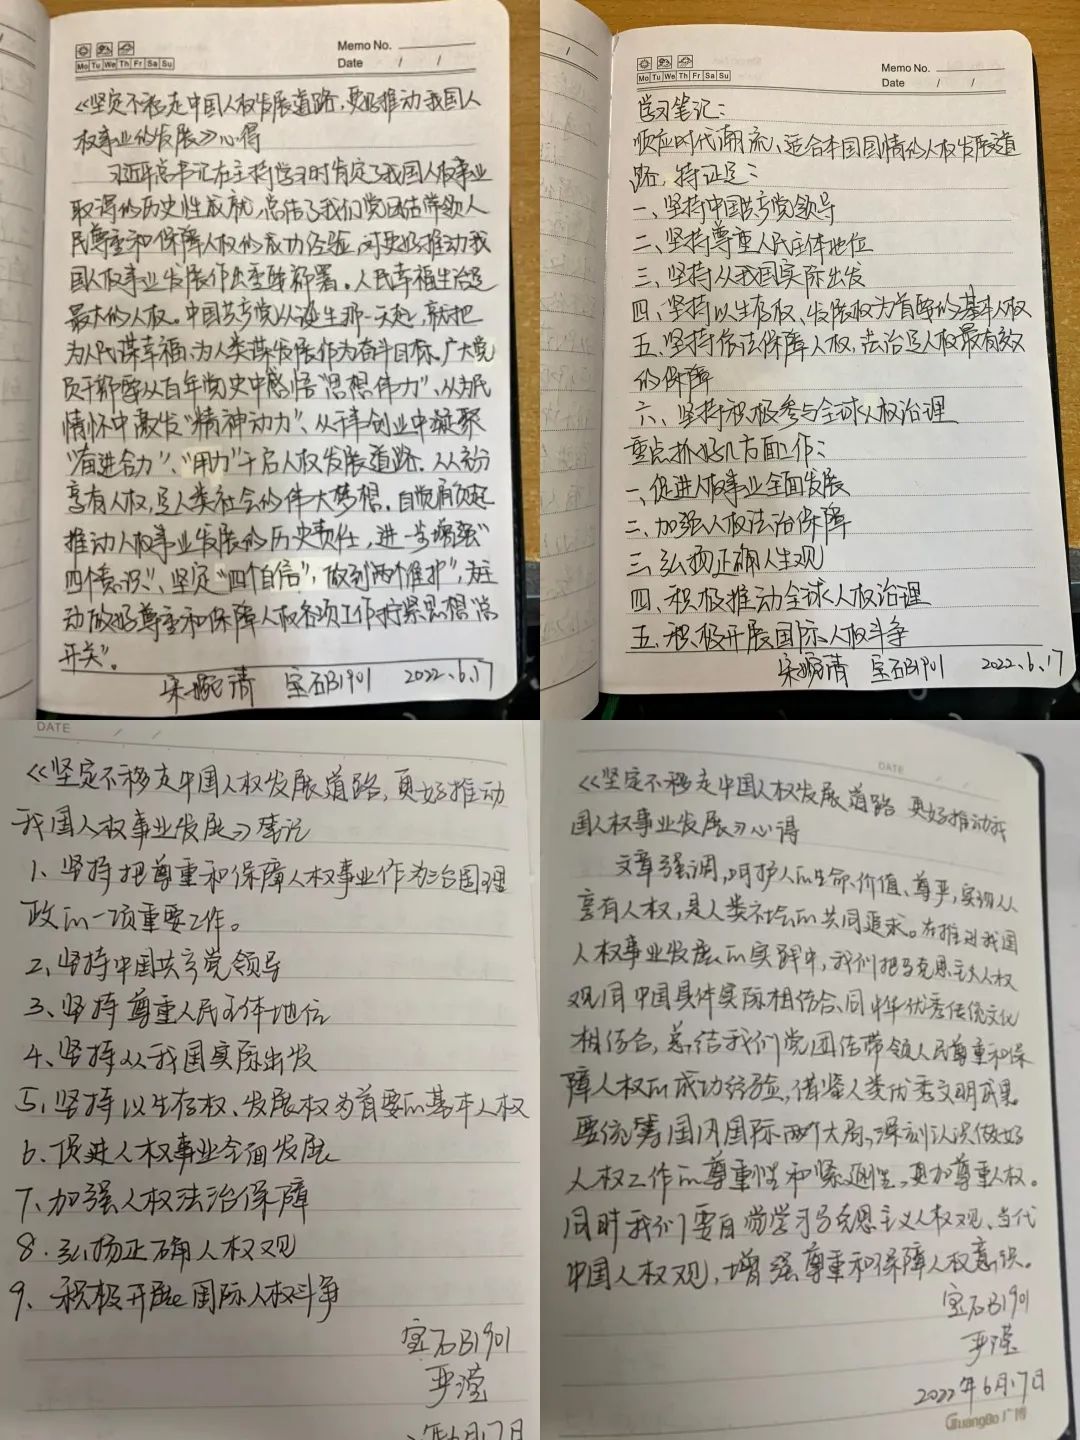 Memo No.
Mo Tu We Th Fr Sa Su
Date / /
《坚定不移走中国人权发展道路，更好推动我国人
权事业的发展》心得
习近平总书记在主持学习时肯定了我国人权事业
取得的历史性成就，总结了我们党团结带领人
民尊重和保障人权的成功经验，对更好推动我
国人权事业发展作出重要部署。人民幸福生活是
最大的人权。中国共产党从诞生那一天起，就把
为人民谋幸福、为人类谋发展作为奋斗目标。广大党
员干部要从百年党史中感悟“思想伟力”、从为民
情怀中激发“精神动力”、从干事创业中凝聚
“奋进合力”、“用力”开启人权发展道路。人人充分
享有人权，是人类社会的伟大梦想。自觉肩负起
推动人权事业发展的历史责任，进一步增强“
四个意识”、坚定“四个自信”，做到“两个维护”，主
动做好尊重和保障人权各项工作拧紧思想“总
开关”。
宋婉清 宝石B1901 2022.6.17
Memo No.
Mo Tu We Th Fr Sa Su
Date / /
学习笔记：
顺应时代潮流、适合本国国情的人权发展道
路，特征是：
一、坚持中国共产党领导
二、坚持尊重人民主体地位
三、坚持从我国实际出发
四、坚持以生存权、发展权为首要的基本人权
五、坚持依法保障人权，法治是人权最有效
的保障
六、坚持积极参与全球人权治理
重点抓好几方面工作：
一、促进人权事业全面发展
二、加强人权法治保障
三、弘扬正确人生观
四、积极推动全球人权治理
五、积极开展国际人权斗争
宋婉清 宝石B1901 2022.6.17
DATE / /
《坚定不移走中国人权发展道路，更好推动
我国人权事业发展》笔记
1、坚持把尊重和保障人权事业作为治国理
政的一项重要工作。
2、坚持中国共产党领导
3、坚持尊重人民主体地位
4、坚持从我国实际出发
5、坚持以生存权、发展权为首要的基本人权
6、促进人权事业全面发展
7、加强人权法治保障
8、弘扬正确人权观
9、积极开展国际人权斗争
宝石B1901
严滢
年6月17日
DATE / /
《坚定不移走中国人权发展道路 更好推动我
国人权事业发展》心得
文章强调，呵护人的生命、价值、尊严，实现人人
享有人权，是人类社会的共同追求。在推进我国
人权事业发展的实践中，我们把马克思主义人权
观同中国具体实际相结合、同中华优秀传统文化
相结合，总结我们党团结带领人民尊重和保
障人权的成功经验，借鉴人类优秀文明成果。
要统筹国内国际两个大局，深刻认识做好
人权工作的尊重性和紧迫性，更加尊重人权。
同时我们要自觉学习马克思主义人权观、当代
中国人权观，增强尊重和保障人权意识。
宝石B1901
严滢
2022年6月17日
GuangBo广博